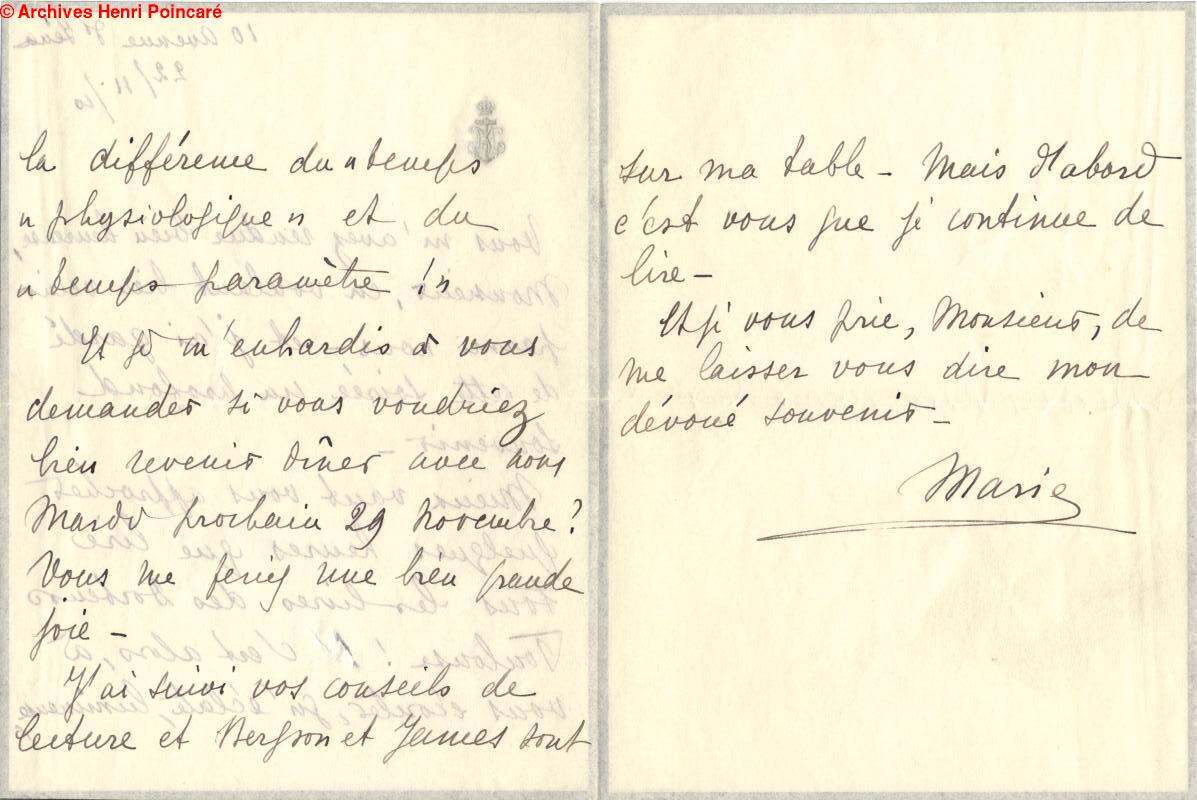 © Archives Henri Poincaré
la différence du "temps
"physiologique" et du
"temps paramètre !"
Et je m'enhardis à vous
demander si vous voudriez
bien revenir dîner avec nous
Mardi prochain 29 Novembre ?
Vous me feriez une bien grande
joie -
J'ai suivi vos conseils de
lecture et Bergson et James sont
sur ma table - Mais d'abord
c'est vous que je continue de
lire -
Et je vous prie, Monsieur, de
me laisser vous dire mon
dévoué souvenir -
Marie